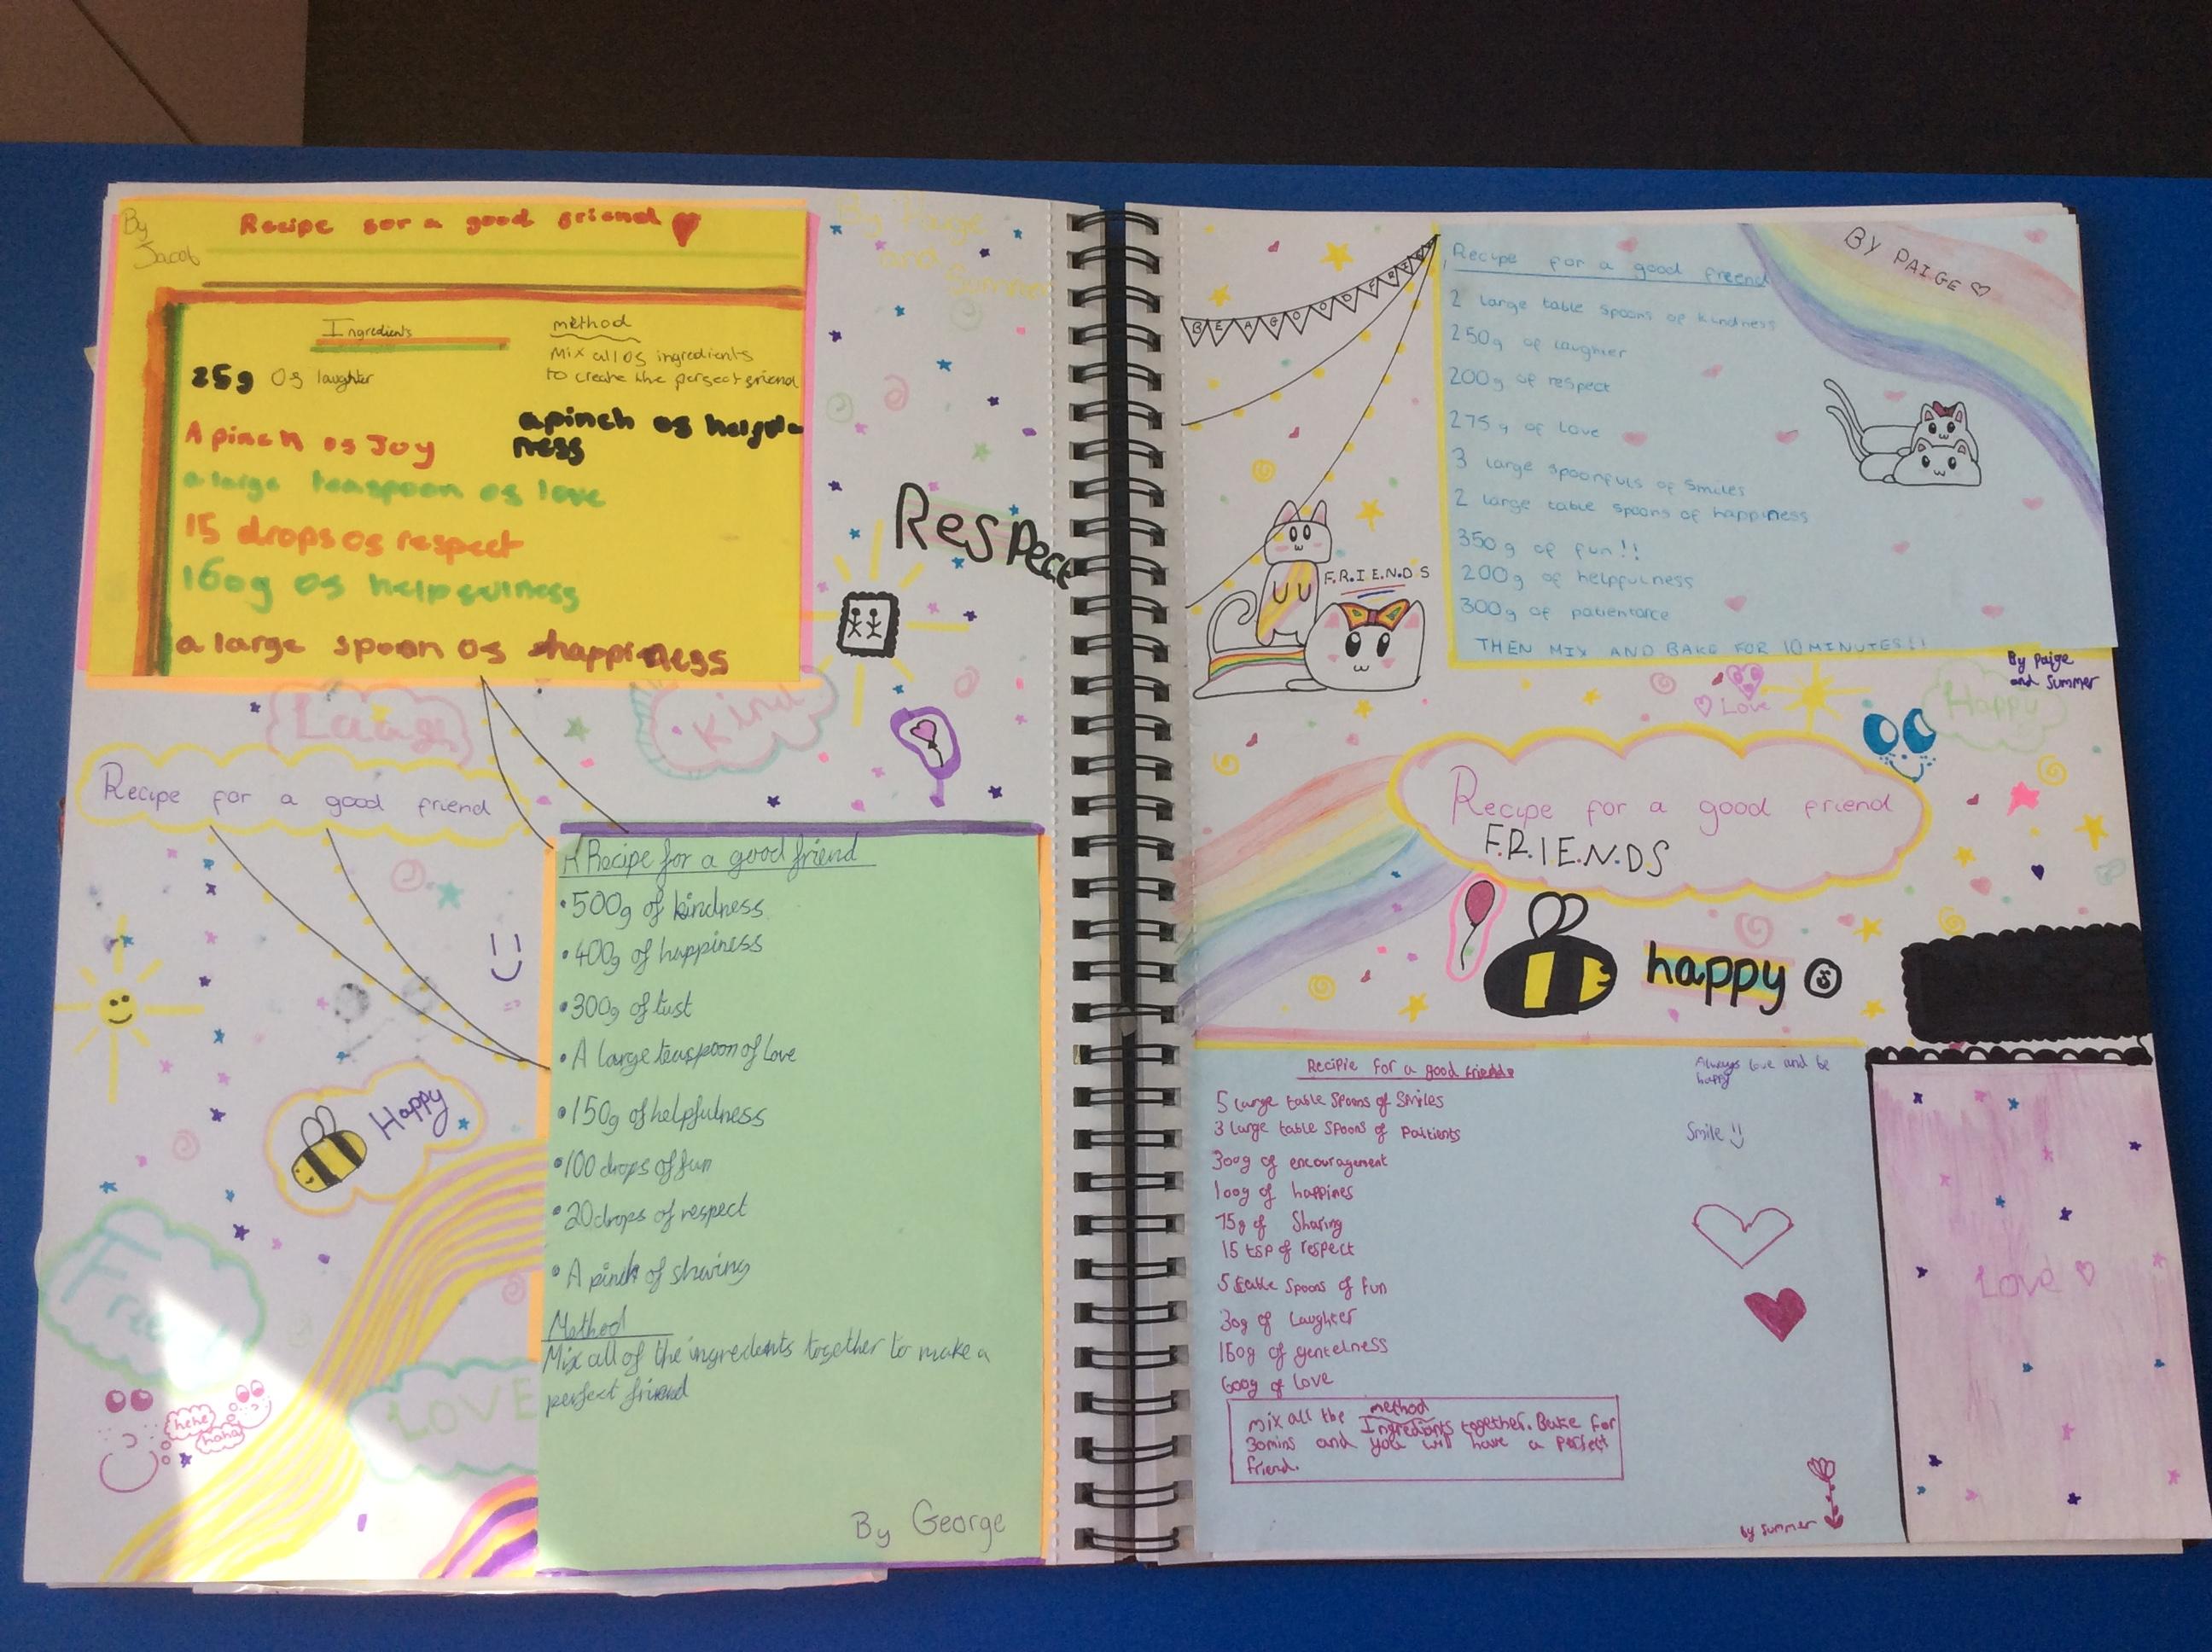 By
Jacob
Recipe for a good friend
Ingredients
method
Mix all of ingredients
to create the perfect friend
25g of laughter
a pinch of helpful-
ness
A pinch of Joy
a large teaspoon of love
15 drops of respect
160g of helpfulness
a large spoon of happiness
By Paige
and
Summer
Respect
Laugh
Kind
Recipe for a good friend
Happy
Friend
LOVE
hehe
haha
A Recipe for a good friend
•500g of kindness
•400g of happiness
•300g of tust
•A large teaspoon of love
•150g of helpfulness
•100 drops of fun
•20 drops of respect
•A pinch of sharing
Method
Mix all of the ingredients together to make a
perfect friend
By George
BE A GOOD FRIEND
F.R.I.E.N.D'S
BY PAIGE
Recipe for a good freend
2 large table spoons of kindness
250g of laughter
200g of respect
275g of love
3 large spoonfuls of smiles
2 large table spoons of happiness
350g of fun!!
200g of helpfulness
300g of patientance
THEN MIX AND BAKE FOR 10 MINUTES!!
By Paige
and Summer
Love
Happy
Recipe for a good friend
F.R.I.E.N.D.S
happy
Recipie for a good friend
5 large table spoons of smiles
3 large table spoons of paitients
300g of encouragement
100g of happines
75g of Sharing
15 tsp of respect
5 table spoons of fun
30g of laughter
150g of gentelness
600g of love
method
mix all the Ingrediants together. Bake for
30mins and you will have a perfect
friend.
Always love and be
happy
Smile
by summer
Love